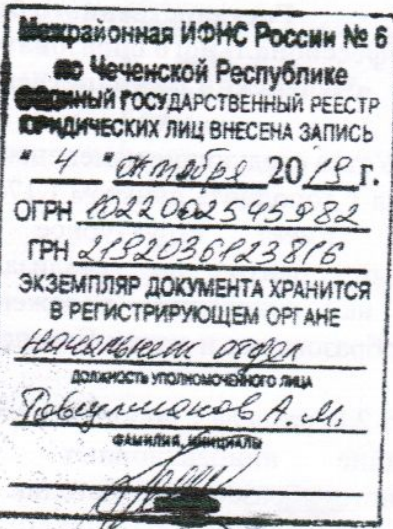 Межрайонная ИФНС России № 6
по Чеченской Республике
Единый ГОСУДАРСТВЕННЫЙ РЕЕСТР
ЮРИДИЧЕСКИХ ЛИЦ ВНЕСЕНА ЗАПИСЬ
" 4 " октября 2019 г.
ОГРН 1022002545982
ГРН 2192036123816
ЭКЗЕМПЛЯР ДОКУМЕНТА ХРАНИТСЯ
В РЕГИСТРИРУЮЩЕМ ОРГАНЕ
начальник отдел
ДОЛЖНОСТЬ УПОЛНОМОЧЕННОГО ЛИЦА
А. М.
ФАМИЛИЯ, ИНИЦИАЛЫ